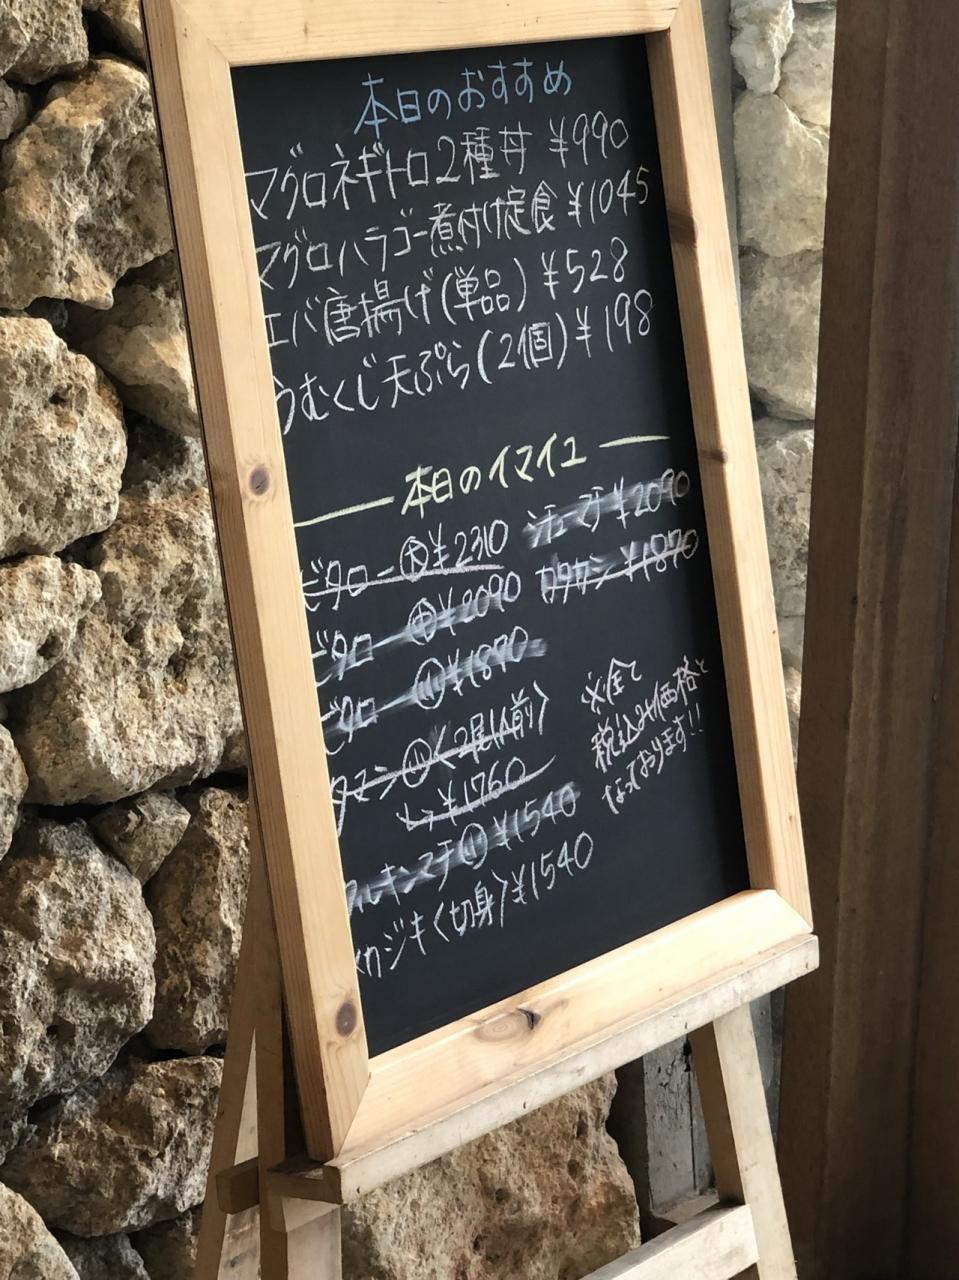 本日のおすすめ
マグロネギトロ2種丼 ¥990
マグロハラゴー煮付け定食 ¥1045
エバ唐揚げ(単品) ¥528
うむくじ天ぷら(2個) ¥198
本日のイマイユ
ビタロー(大)¥2310
ビタロー(中)¥2090
ビタロー(小)¥1870
タマン(小)〈2尾1人前〉
¥1760
(小)¥1540
メカジキ〈切身〉¥1540
¥2090
カタカシ ¥1870
※全て
税込み価格と
なっております!!